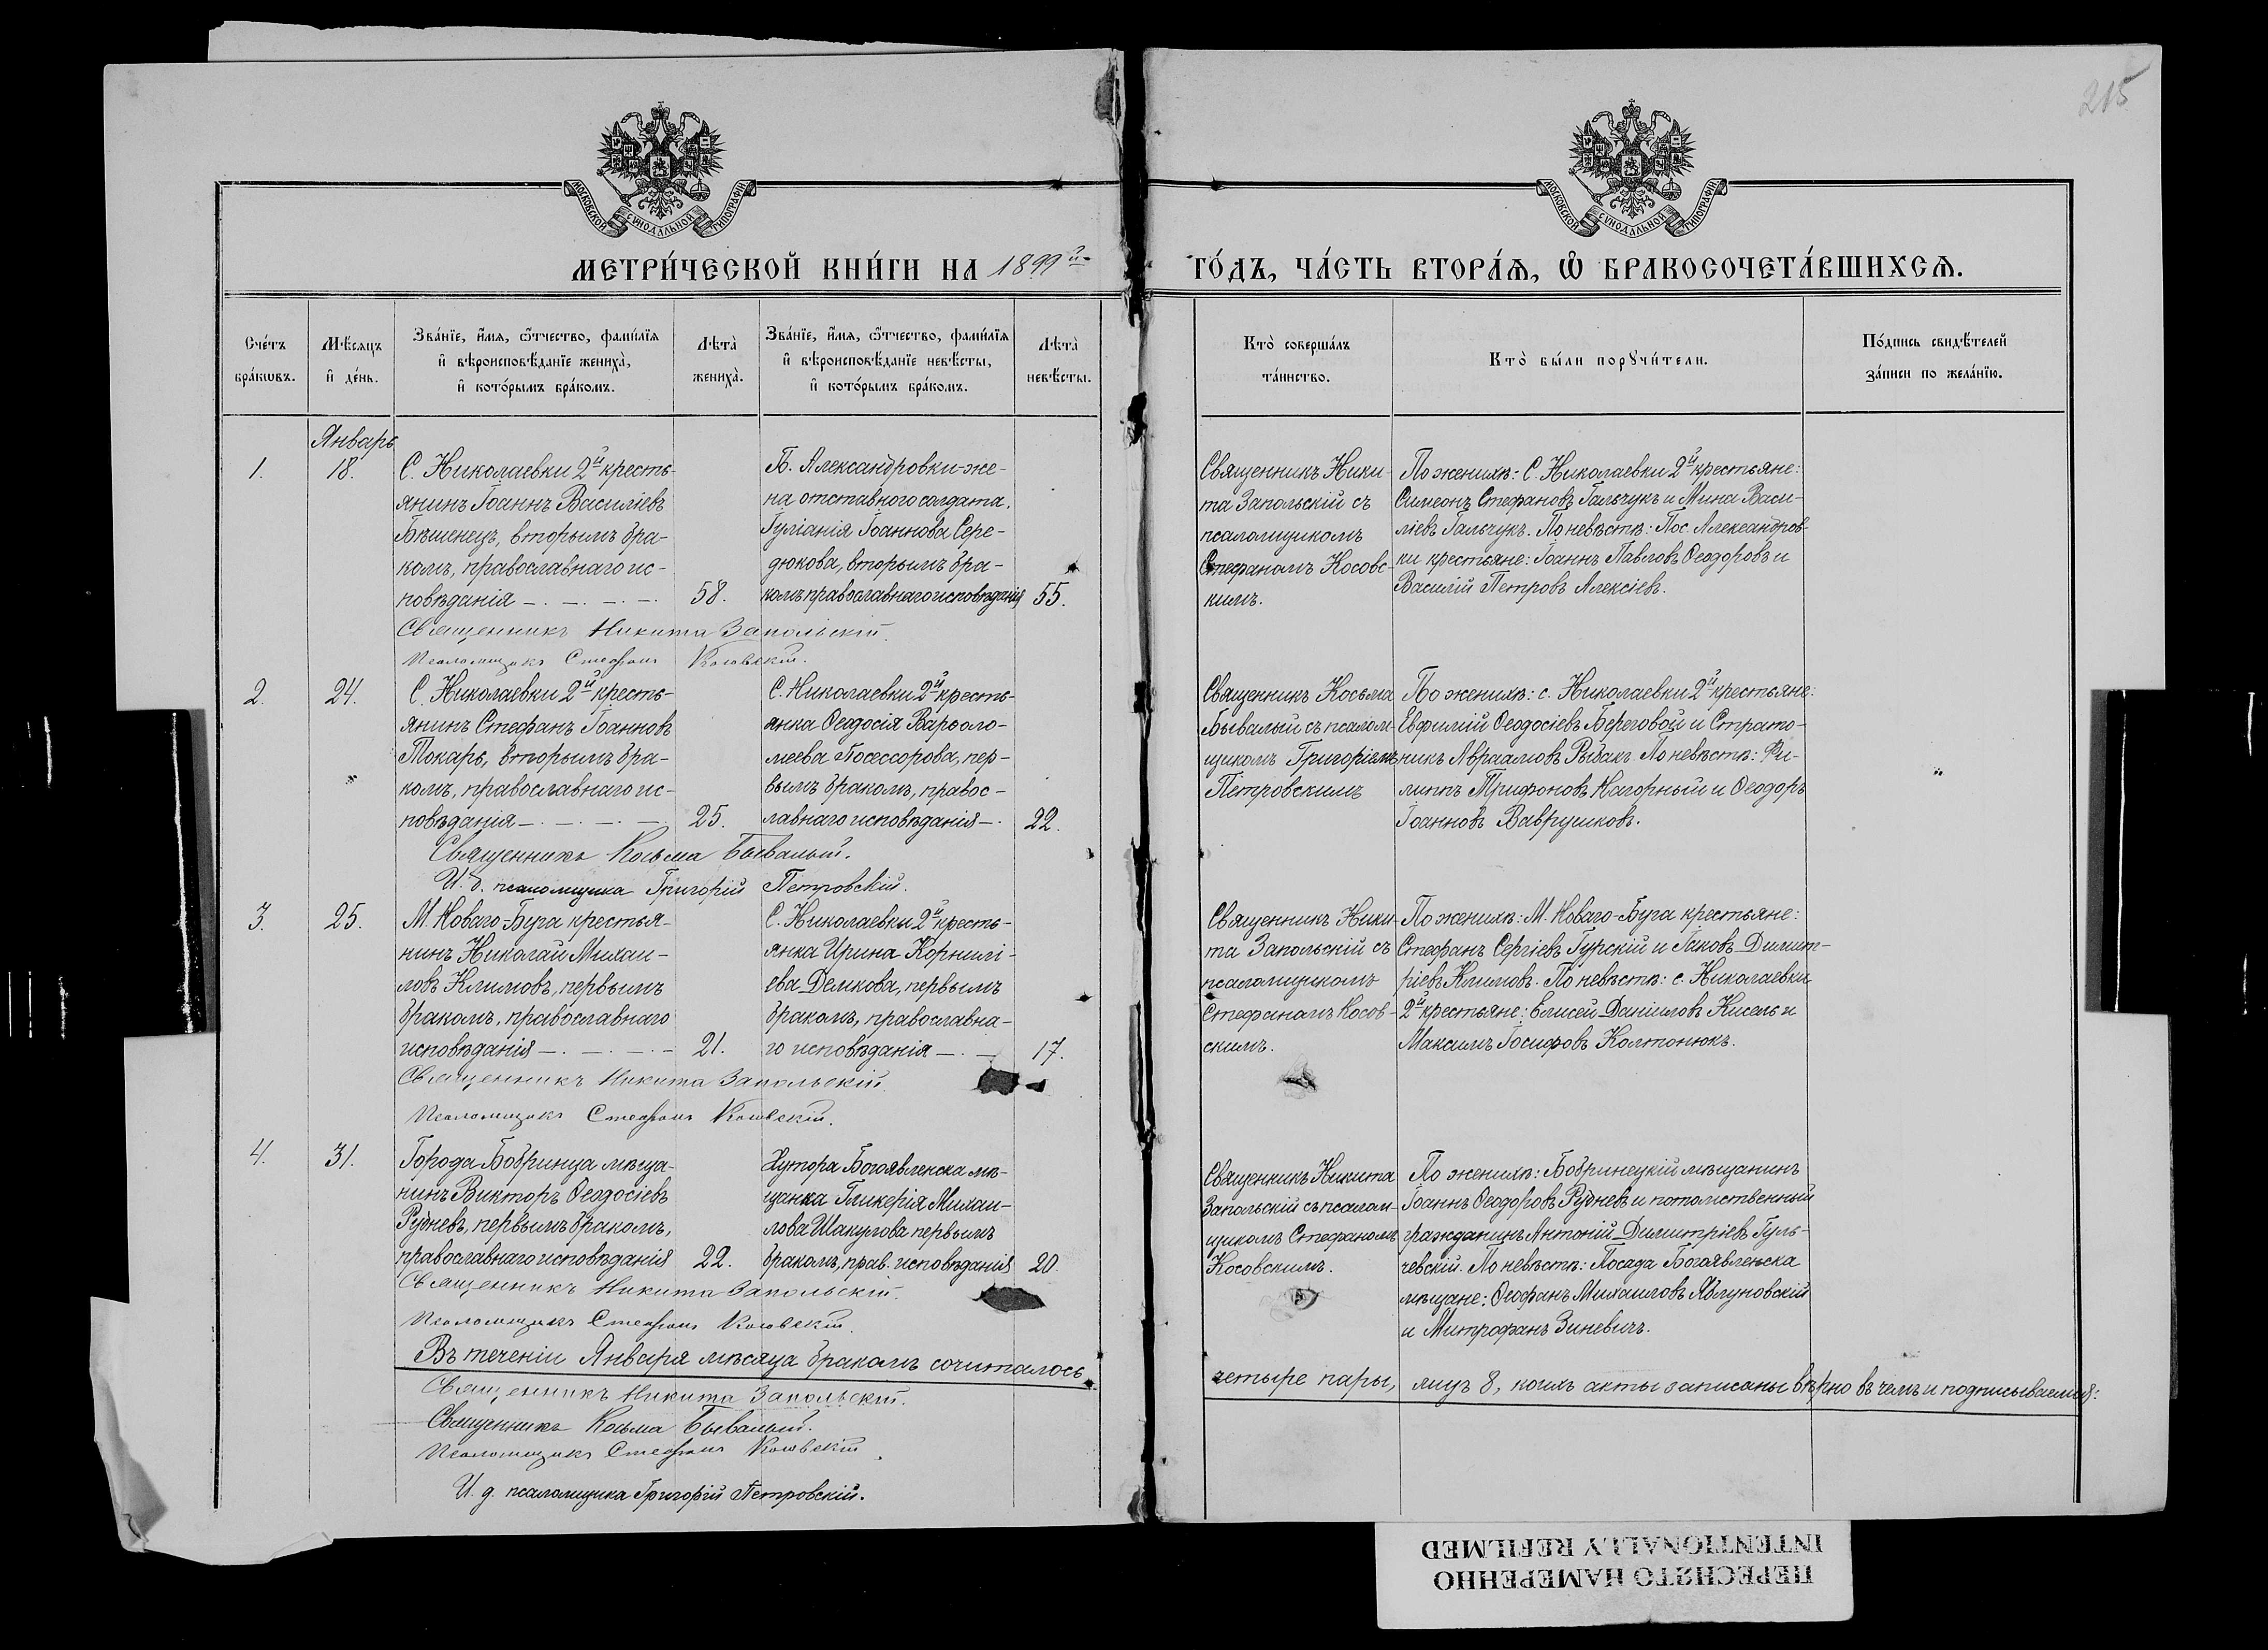 215
МОСКОВСКОЙ СѴНОДАЛЬНОЙ ТИПОГРАФІИ
МОСКОВСКОЙ СѴНОДАЛЬНОЙ ТИПОГРАФІИ
МЕТРИ́ЧЕСКОЙ КНИ́ГИ НА 1899й
ГО́ДЪ, ЧА́СТЬ ВТОРА́Ѧ, Ѽ БРАКОСОЧЕТА́ВШИХСѦ.
Сче́тъ
бра́кѡвъ.
Мѣ́сяцъ
и҆ де́нь.
Зва́нїе, и҆́мѧ, ѻ҆́тчество, фами́лїѧ
и҆ вѣроисповѣ́данїе жениха̀,
и҆ кото́рымъ бра́комъ.
Лѣта̀
жениха̀.
Зва́нїе, и҆́мѧ, ѻ҆́тчество, фами́лїѧ
и҆ вѣроисповѣ́данїе невѣ́сты,
и҆ кото́рымъ бра́комъ.
Лѣта̀
невѣ́сты.
Кто̀ соверша́лъ
та́инство.
Кто̀ бы́ли порꙋчи́тели.
По́дпись свидѣ́телей
за́писи по жела́нїю.
Январь
1.
18.
С. Николаевки 2й кресть-
янинъ Іоаннъ Василіевъ
Бѣшенецъ, вторымъ бра-
комъ, православнаго ис-
повѣданія — . — . — . — .
58.
П. Александровки же-
на отставного солдата,
Іуліанія Іоаннова Сере-
дюкова, вторымъ бра-
комъ православнаго исповѣданія
55.
Священникъ Ники-
та Запольскій съ
псаломщикомъ
Стефаномъ Косовс-
кимъ.
По женихѣ: С. Николаевки 2й крестьяне:
Симеонъ Стефановъ Гальчукъ и Мина Васи-
ліевъ Гальчукъ. По невѣстѣ: Пос. Александров-
ки крестьяне: Іоаннъ Павловъ Ѳеодоровъ и
Василій Петровъ Алексіевъ.
Священникъ Никита Запольскій.
Псаломщикъ Стефанъ Косовскій.
2.
24.
С. Николаевки 2й кресть-
янинъ Стефанъ Іоанновъ
Токарь, вторымъ бра-
комъ, православнаго ис-
повѣданія — . — . — . — .
25.
С. Николаевки 2й кресть-
янка Ѳеодосія Варѳоло-
меева Посессорова, пер-
вымъ бракомъ, правос-
лавнаго исповѣданія — .
22.
Священникъ Косьма
Бывалый съ псалом-
щикомъ Григоріемъ
Петровскимъ
По женихѣ: с. Николаевки 2й крестьяне:
Евфимій Ѳеодосіевъ Береговой и Страто-
никъ Авраамовъ Рыбакъ. По невѣстѣ: Фи-
липпъ Трифоновъ Нагорный и Ѳеодоръ
Іоанновъ Ваврушковъ.
Священникъ Косьма Бывалый.
И. д. псаломщика Григорій Петровскій.
3.
25.
М. Новаго-Буга крестья-
нинъ Николай Михаи-
ловъ Климовъ, первымъ
бракомъ, православнаго
исповѣданія — . — . — . —
21.
С. Николаевки 2й кресть-
янка Ирина Корнилі-
ева Демкова, первымъ
бракомъ, православна-
го исповѣданія — . —
17.
Священникъ Ники-
та Запольскій съ
псаломщикомъ
Стефаномъ Косов-
скимъ.
По женихѣ: М. Новаго-Буга крестьяне:
Стефанъ Сергіевъ Гурскій и Іаковъ Димит-
ріевъ Климовъ. По невѣстѣ: с. Николаевки
2й крестьяне: Елисей Даніиловъ Кисель и
Максимъ Іосифовъ Колтонюкъ.
Священникъ Никита Запольскій
Псаломщикъ Стефанъ Косовскій.
4.
31.
Города Бобринца мѣща-
нинъ Викторъ Ѳеодосіевъ
Рудневъ, первымъ бракомъ,
православнаго исповѣданія
22.
Хутора Богоявленска мѣ-
щанка Гликерія Михаи-
лова Шакулова первымъ
бракомъ, прав. исповѣданія
20.
Священникъ Никита
Запольскій съ псалом-
щикомъ Стефаномъ
Косовскимъ.
По женихѣ: Бобринецкій мѣщанинъ
Іоаннъ Ѳеодоровъ Рудневъ и потомственный
гражданинъ Антоній Димитріевъ Гуль-
чевскій. По невѣстѣ: Посада Богоявленска
мѣщане: Ѳеофанъ Михаиловъ Яблуновскій
и Митрофанъ Зиневичъ.
Священникъ Никита Запольскій.
Псаломщикъ Стефанъ Косовскій.
Въ теченіи Января мѣсяца бракомъ сочиталось
четыре пары, лицъ 8, коихъ акты записаны вѣрно въ чемъ и подписываемся:
Священникъ Никита Запольскій.
Священникъ Косьма Бывалый.
Псаломщикъ Стефанъ Косовскій.
И. д. псаломщика Григорій Петровскій.
ПЕРЕСНЯТО НАМЕРЕННО
INTENTIONALLY REFILMED